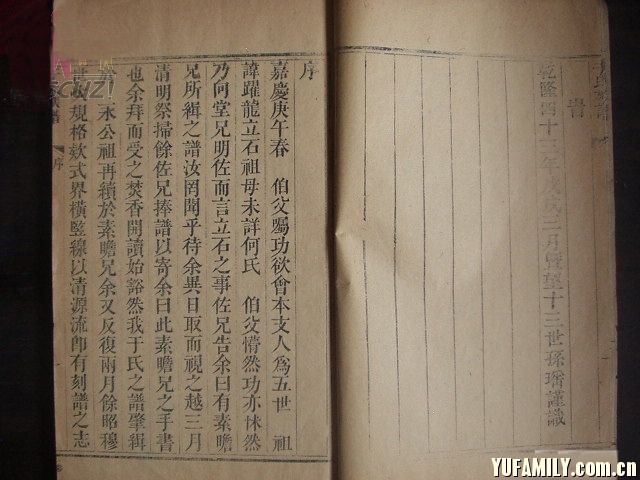 旹
乾隆四十三年三月望十三世孫璠謹識
序
嘉慶庚午春 伯父囑功欲會本支人爲五世 祖
諱躍龍立石祖母未詳何氏 伯父懵然功亦怵然
乃向堂兄明佐而言立石之事佐兄告余曰有素瞻
兄所緝之譜汝罔聞乎待余異日取而視之越三月
清明祭掃餘佐兄捧譜以寄余曰此素瞻兄之手書
也余拜而受之焚香開讀始豁然我于氏之譜肇緝
永公祖再續於素瞻兄余又反復兩月餘昭穆
規格欵式界橫豎線以清源流卽有刻譜之志
序
YUFAMILY.com.cn